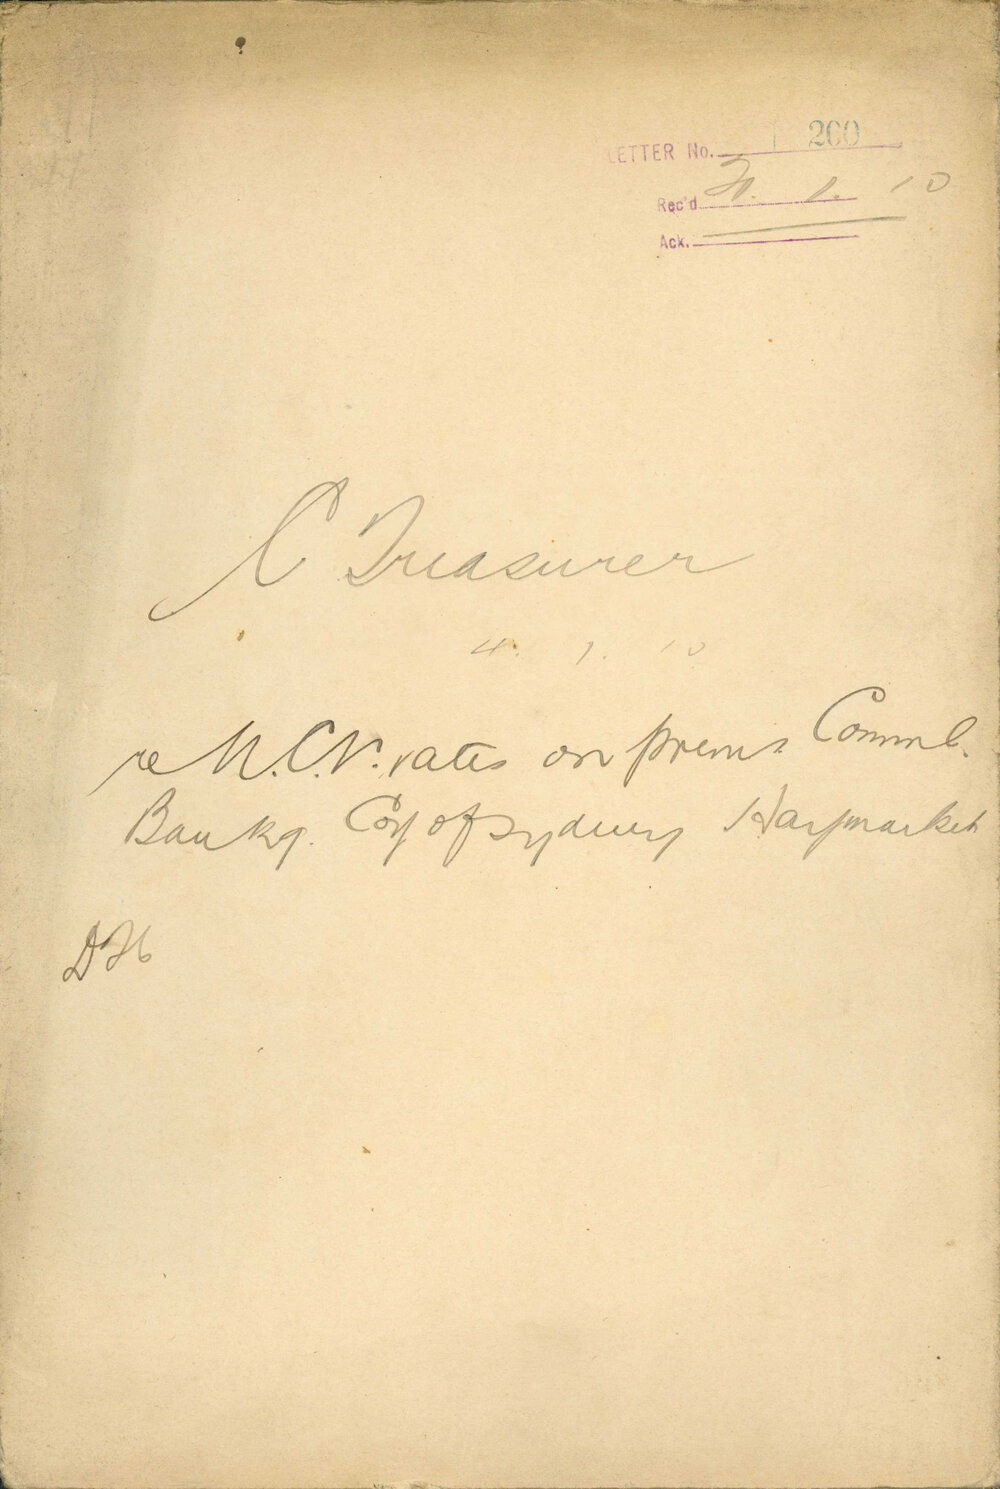 LETTER No. 260
Rec'd 4. 1. 10
Ack.
C Treasurer
4. 1. 10
re U.C.V. rates on prems Comml.
Bankg. Coy of Sydney Haymarket